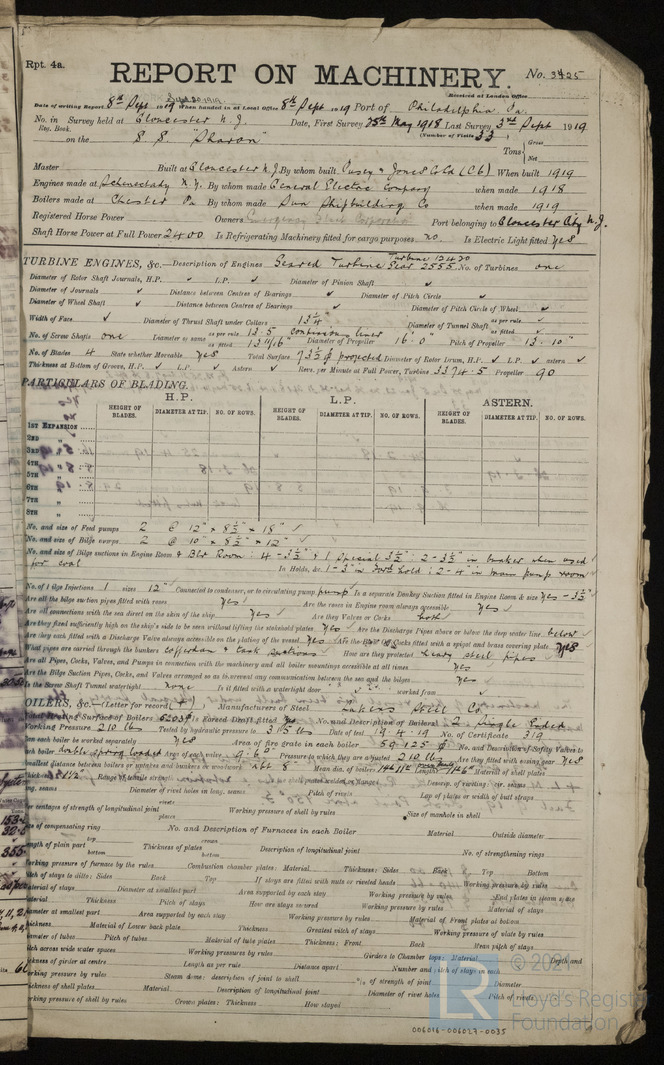 Rpt. 4a.
REPORT ON MACHINERY.
No. 3425
Received at London Office
Sept 20 1919
Date of writing Report 8th Sept 1919 When handed in at Local Office 8th Sept 1919 Port of Philadelphia Pa.
No. in Survey held at Gloucester N.J. Date, First Survey 28th May 1918 Last Survey 3rd Sept 1919
Reg. Book. (Number of Visits 33)
on the S.S. "Sharon" Tons Gross Net
Master Built at Gloucester N.J. By whom built Pusey & Jones Co Ld When built 1919
Engines made at Schenectady N.Y. By whom made General Electric Company when made 1918
Boilers made at Chester Pa By whom made Sun Shipbuilding Co when made 1919
Registered Horse Power Owners Emergency Fleet Corporation Port belonging to Gloucester City N.J.
Shaft Horse Power at Full Power 2400 Is Refrigerating Machinery fitted for cargo purposes no Is Electric Light fitted yes
TURBINE ENGINES, &c.—Description of Engines Geared Turbine Gear 2555 No. of Turbines one
Diameter of Rotor Shaft Journals, H.P. L.P. Diameter of Pinion Shaft
Diameter of Journals Distance between Centres of Bearings Diameter of Pitch Circle
Diameter of Wheel Shaft Distance between Centres of Bearings Diameter of Pitch Circle of Wheel
Width of Face Diameter of Thrust Shaft under Collars 13¼" Diameter of Tunnel Shaft as per rule as fitted
No. of Screw Shafts one Diameter of same as per rule 13.5 as fitted 13 11/16" continuous liner Diameter of Propeller 16'.0" Pitch of Propeller 13'.10"
No. of Blades 4 State whether Moveable yes Total Surface projected Diameter of Rotor Drum, H.P. L.P. astern
Thickness at Bottom of Groove, H.P. L.P. Astern Revs. per Minute at Full Power, Turbine 3374.5 Propeller 90
PARTICULARS OF BLADING.
H.P. L.P. ASTERN.
HEIGHT OF BLADES. DIAMETER AT TIP. NO. OF ROWS. HEIGHT OF BLADES. DIAMETER AT TIP. NO. OF ROWS. HEIGHT OF BLADES. DIAMETER AT TIP. NO. OF ROWS.
1ST EXPANSION
2ND "
3RD "
4TH "
5TH "
6TH "
7TH "
8TH "
No. and size of Feed pumps 2 @ 12" x 8½" x 18"
No. and size of Bilge pumps 2 @ 10" x 8½" x 12"
No. and size of Bilge suctions in Engine Room & Blr Room: 4 - 3½" & 1 special 3½": 2 - 3½" in bunker when used
for coal In Holds, &c. 1 - 3" in Fwd hold: 2 - 4" in main pump room
No. of Bilge Injections 1 sizes 12" Connected to condenser, or to circulating pump pump Is a separate Donkey Suction fitted in Engine Room & size yes - 3½"
Are all the bilge suction pipes fitted with roses yes Are the roses in Engine room always accessible yes
Are all connections with the sea direct on the skin of the ship yes Are they Valves or Cocks both
Are they fixed sufficiently high on the ship's side to be seen without lifting the stokehold plates yes Are the Discharge Pipes above or below the deep water line below
Are they each fitted with a Discharge Valve always accessible on the plating of the vessel yes Are the Blow Off Cocks fitted with a spigot and brass covering plate yes
What pipes are carried through the bunkers cofferdam & tank suctions How are they protected heavy steel pipes
Are all Pipes, Cocks, Valves, and Pumps in connection with the machinery and all boiler mountings accessible at all times yes
Are the Bilge Suction Pipes, Cocks, and Valves arranged so as to prevent any communication between the sea and the bilges yes
Is the Screw Shaft Tunnel watertight none Is it fitted with a watertight door worked from
BOILERS, &c.—(Letter for record ) Manufacturers of Steel Lukens Steel Co.
Total Heating Surface of Boilers Is Forced Draft fitted yes No. and Description of Boilers 2 Single Ended
Working Pressure 210 lbs Tested by hydraulic pressure to 315 lbs Date of test 19.4.19 No. of Certificate 319
Can each boiler be worked separately yes Area of fire grate in each boiler No. and Description of Safety Valves to
each boiler double spring loaded Area of each valve Pressure to which they are adjusted 210 lbs Are they fitted with easing gear yes
Smallest distance between boilers or uptakes and bunkers or woodwork Mean dia. of boilers Length Material of shell plates
Thickness Range of tensile strength Descrip. of riveting: cir. seams
long. seams Diameter of rivet holes in long. seams Pitch of rivets Lap of plates or width of butt straps
Per centages of strength of longitudinal joint Working pressure of shell by rules Size of manhole in shell
Size of compensating ring No. and Description of Furnaces in each Boiler Material Outside diameter
Length of plain part top bottom Thickness of plates crown bottom Description of longitudinal joint No. of strengthening rings
Working pressure of furnace by the rules Combustion chamber plates: Material Thickness: Sides Back Top Bottom
Pitch of stays to ditto: Sides Back Top If stays are fitted with nuts or riveted heads Working pressure by rules
Material of stays Diameter at smallest part Area supported by each stay Working pressure by rules End plates in steam space
Material Thickness Pitch of stays How are stays secured Working pressure by rules Material of stays
Diameter at smallest part Area supported by each stay Working pressure by rules Material of Front plates at bottom
Thickness Material of Lower back plate Thickness Greatest pitch of stays Working pressure of plate by rules
Diameter of tubes Pitch of tubes Material of tube plates Thickness: Front Back Mean pitch of stays
Pitch across wide water spaces Working pressures by rules Girders to Chamber tops: Material Depth and
thickness of girder at centre Length as per rule Distance apart Number and pitch of stays in each
Working pressure by rules Steam dome: description of joint to shell % of strength of joint Diameter
Thickness of shell plates Material Description of longitudinal joint Diameter of rivet holes Pitch of rivets
Working pressure of shell by rules Crown plates: Thickness How stayed
© 2021
LR
Lloyd's Register
Foundation
006016-006027-0035